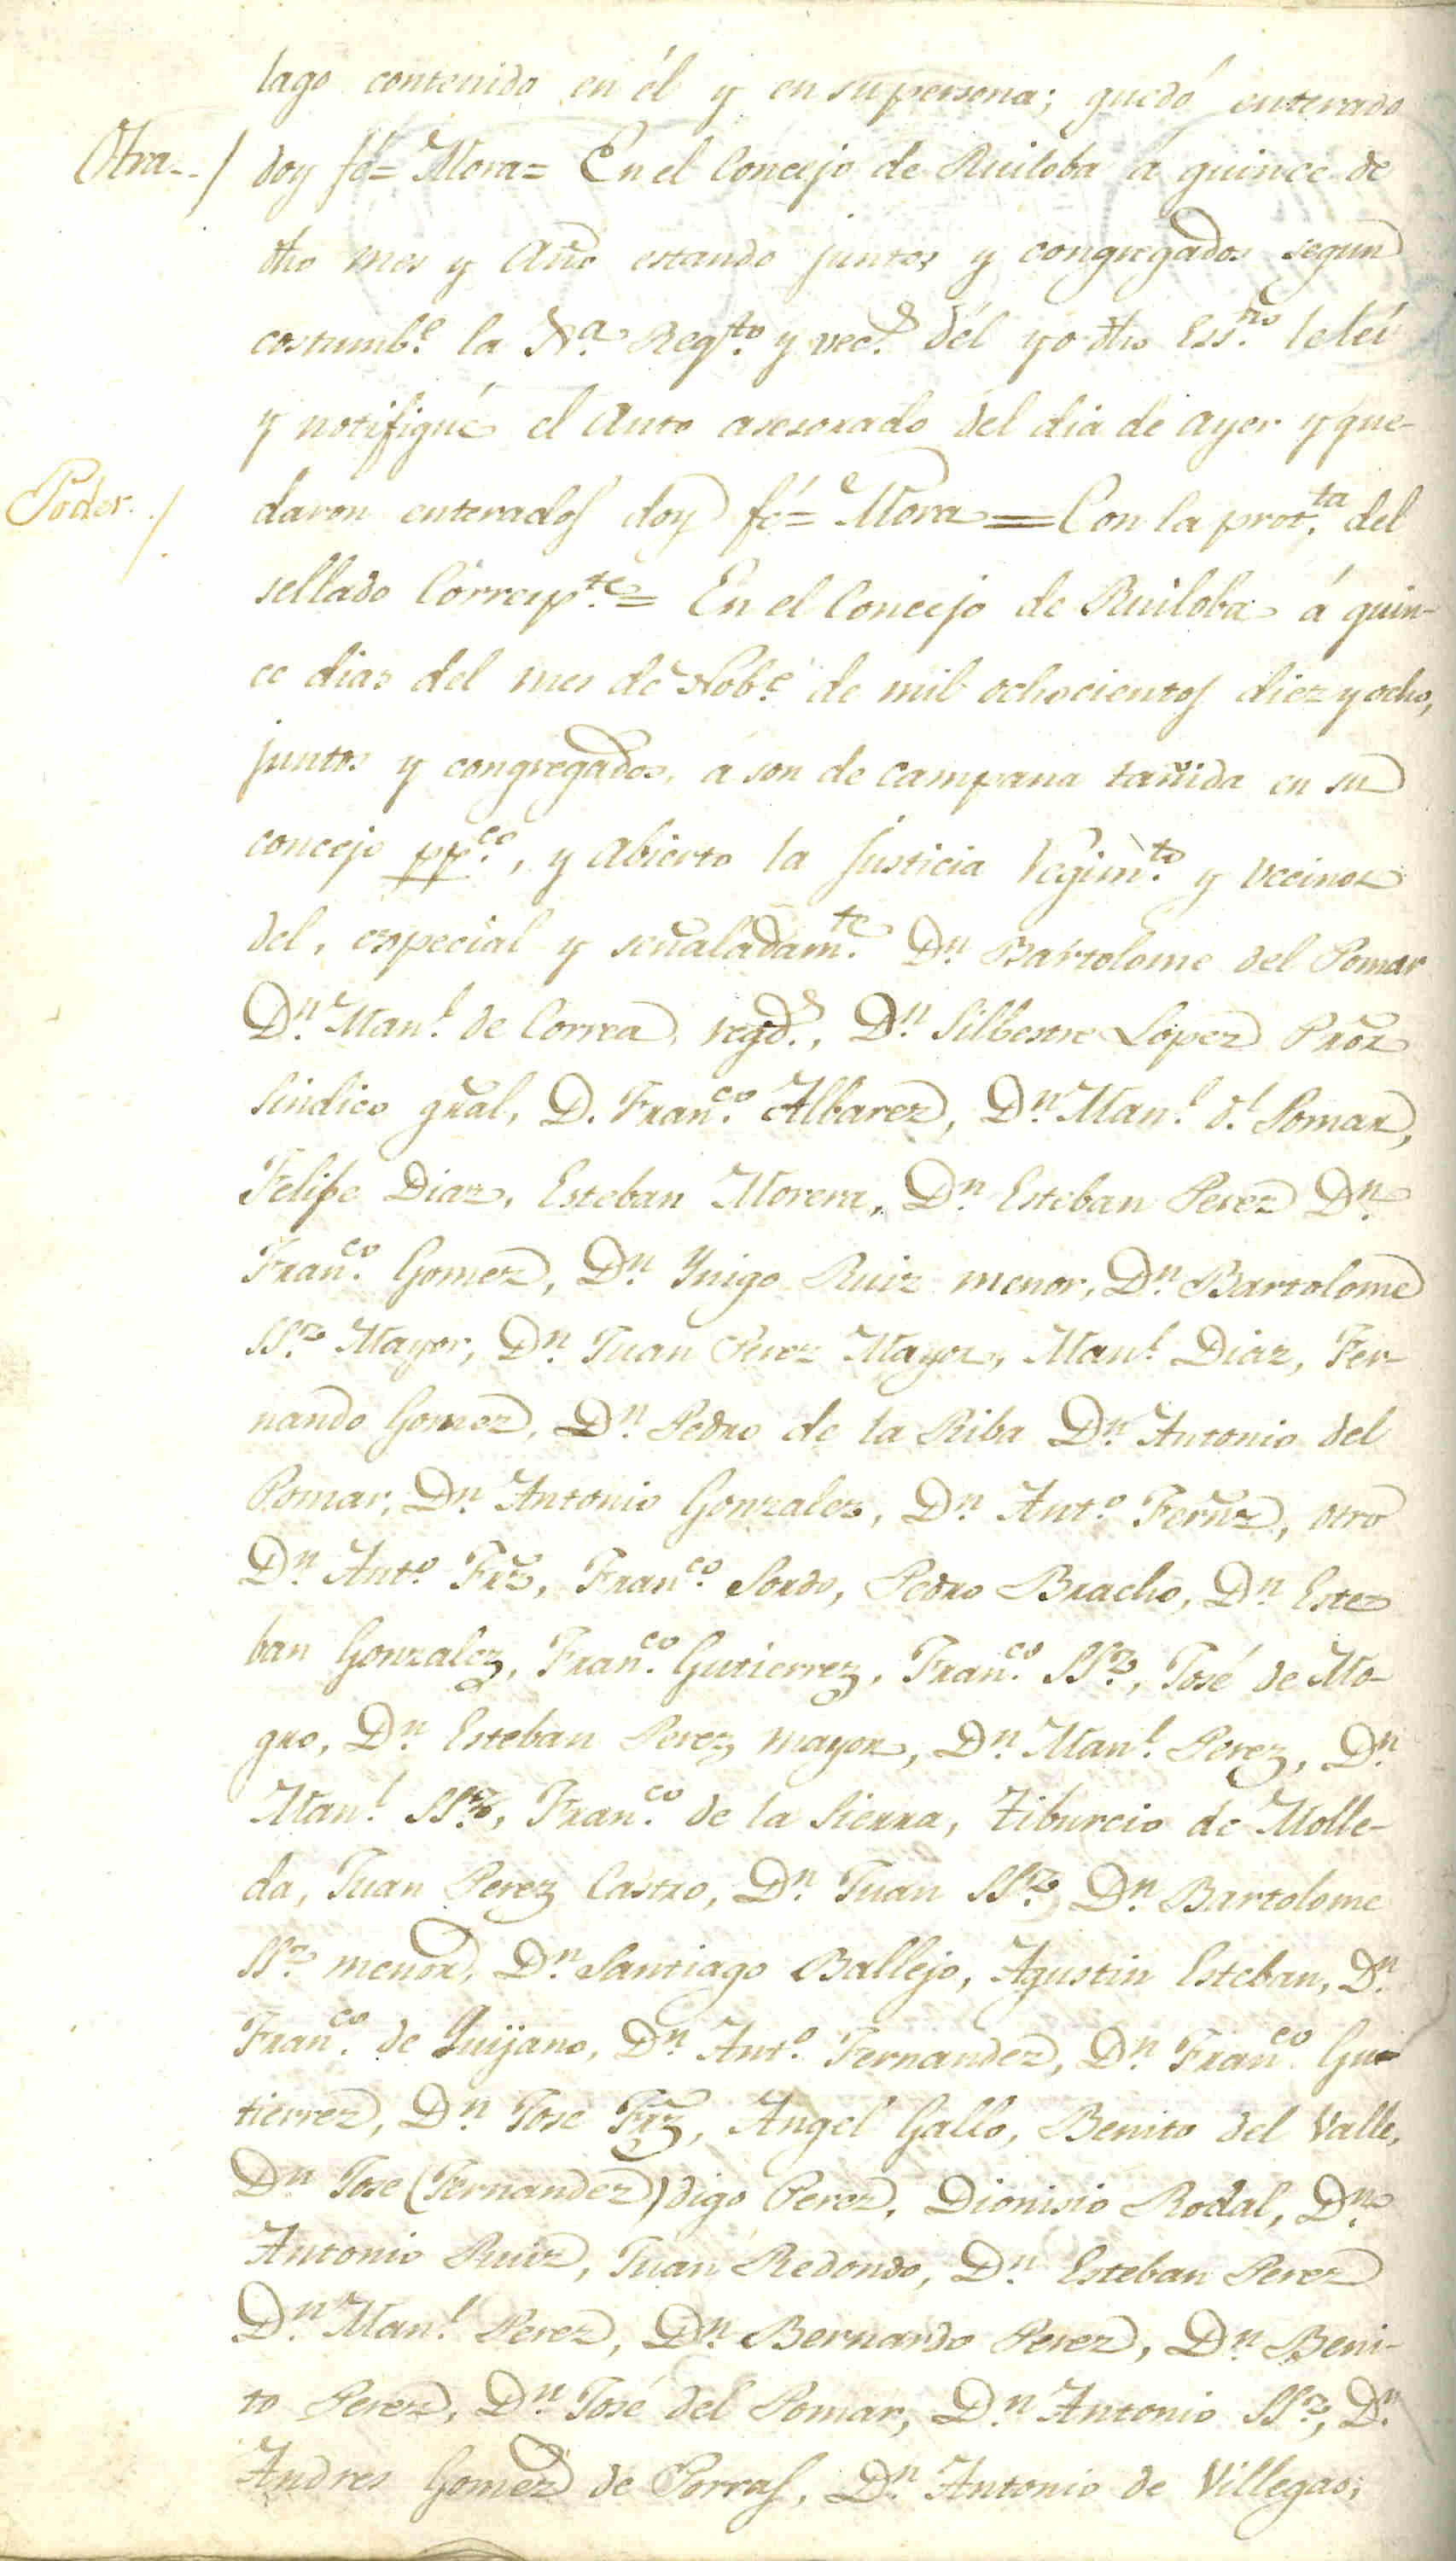 lago contenido en él y en su persona; quedó enterado
Otra../ doy fé= Mora= En el Concejo de Ruiloba á quince de
dho mes y Año estando juntos y congregados segun
costumb.e la Reg.to y vec.s del yo dho Ess.no le leí
y notifiqué el Auto asesorado del dia de ayer y que-
Poder../ daron enterados doy fé= Mora= Con la prot.ta del
sellado Corresp.te= En el Concejo de Ruiloba á quin-
ce dias del mes de Nob.e de mil ochocientos diez y ocho,
juntos y congregados, a son de campana tañida en su
concejo pp.co, y Abierto la Justicia Regim.to y vecinos
del, especial y señaladam.te D.n Bartolome del Pomar
D.n Man.l de Correa, regd.s, D.n Silbestre Lopez Pror
Sindico gral, D. Fran.co Albarez, D.n Man.l d.l Pomar,
Felipe Diaz, Esteban Morera, D.n Esteban Perez D.n
Fran.co Gomez, D.n Ynigo Ruiz menor, D.n Bartolome
SS.z Mayor, D.n Juan Perez Mayor, Man.l Diaz, Fer-
nando Gomez, D.n Pedro de la Riba D.n Antonio del
Pomar, D.n Antonio Gonzalez, D.n Ant.o Fernz, otro
D.n Ant.o Frz, Fran.co Sordo, Pedro Bracho, D.n Este
ban Gonzalez, Fran.co Gutierrez, Fran.co SS.z, José de Mo-
gro, D.n Esteban Perez mayor, D.n Man.l Perez, D.n
Man.l SS.z, Fran.co de la Sierra, Tiburcio de Molle-
da, Juan Perez Castro, D.n Juan SS.z D.n Bartolome
SS.z menor, D.n Santiago Ballejo, Agustin Esteban, D.n
Fran.co de Quijano, D.n Ant.o Fernandez, D.n Fran.co Gu-
tierrez, D.n Jose Frz, Angel Gallo, Benito del Valle,
D.n Jose (Fernandez) digo Perez, Dionisio Rodal, D.n
Antonio Ruiz, Juan Redondo, D.n Esteban Perez
D.n Man.l Perez, D.n Bernardo Perez, D.n Beni-
to Perez, D.n José del Pomar, D.n Antonio SS.z, D.n
Andres Gomez de Porras, D.n Antonio de Villegas,